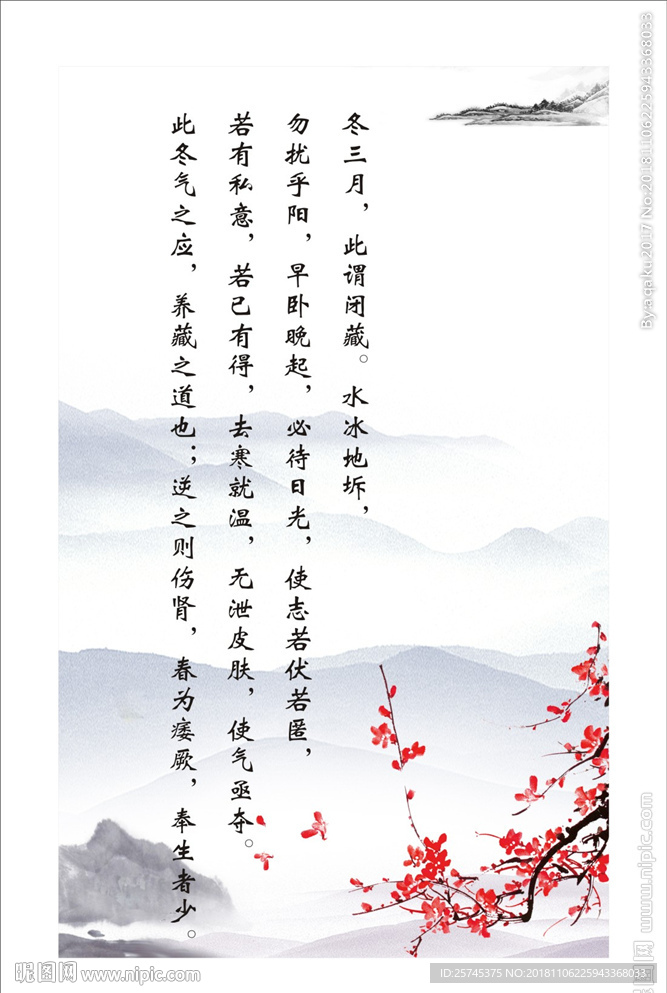 冬三月，此谓闭藏。水冰地坼，
勿扰乎阳，早卧晚起，必待日光，使志若伏若匿，
若有私意，若已有得，去寒就温，无泄皮肤，使气亟夺。
此冬气之应，养藏之道也；逆之则伤肾，春为痿厥，奉生者少。
By:aqaku2017 No:20181106225943368033
昵图网 www.nipic.com
昵图网 www.nipic.com
ID:25745375 NO:20181106225943368033